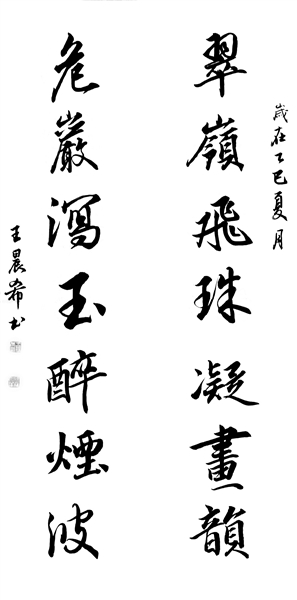 歲在乙巳夏月
翠嶺飛珠凝畫韻
危巖瀉玉醉煙波
王晨希书